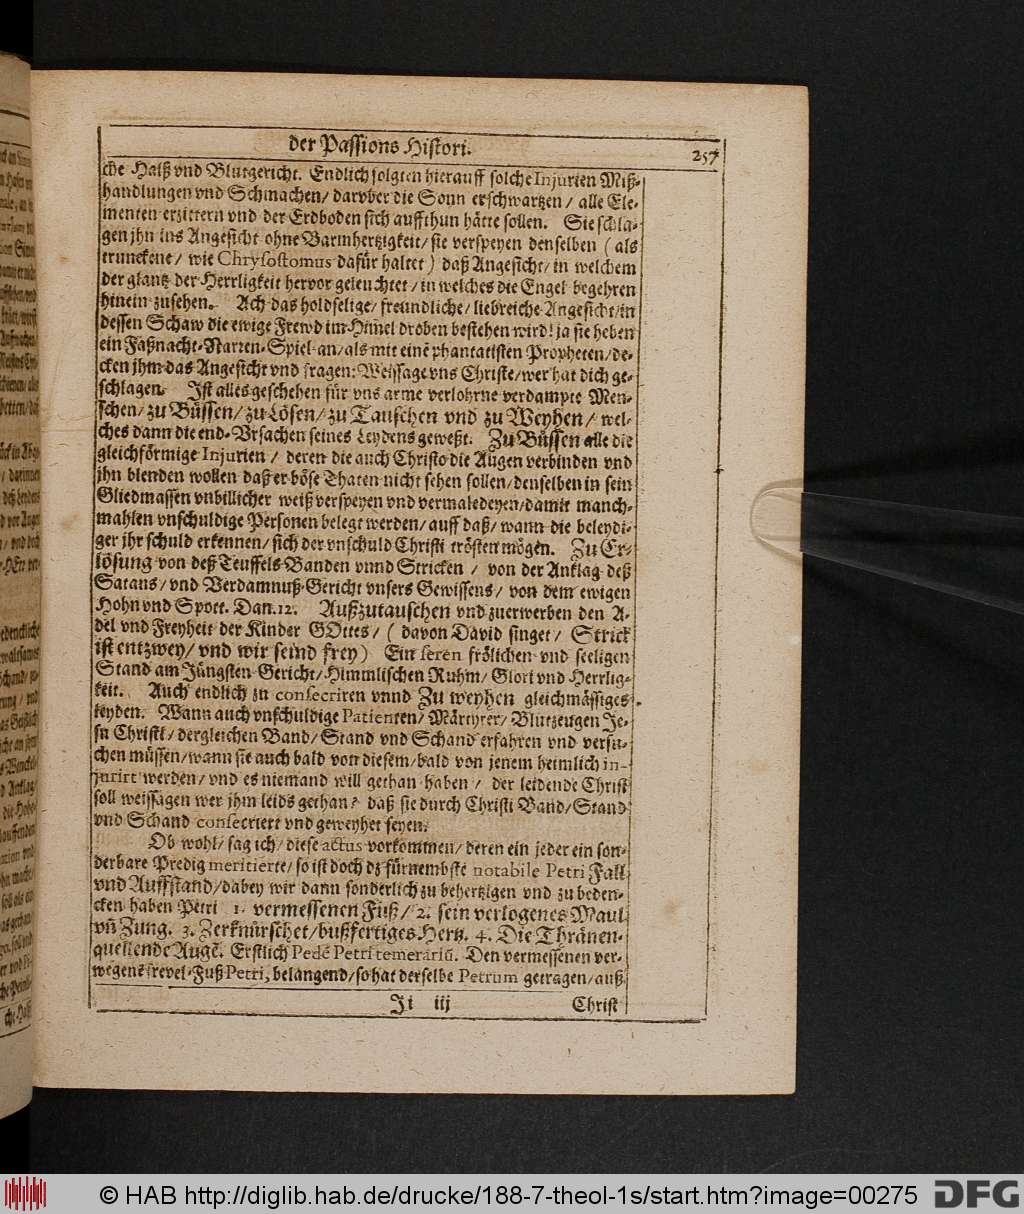 der Passions Histori.
257
che Halß vnd Blutgericht. Endlich folgten hierauff solche Injurien Miß-
handlungen vnd Schmachen/ darvber die Sonn erschwartzen/ alle Ele-
menten erzittern vnd der Erdboden sich auffthun hätte sollen. Sie schla-
gen jhn ins Angesicht ohne Barmhertzigkeit/ sie verspeyen denselben (als
trunckene/ wie Chrysostomus dafür haltet) daß Angesicht/ in welchem
der glantz der Herrligkeit hervor geleuchtet/ in welches die Engel begehren
hinein zusehen. Ach das holdselige/ freundliche/ liebreiche Angesicht/ in
dessen Schaw die ewige Frewd im Him̄el droben bestehen wird! ja sie heben
ein Faßnacht-Narren-Spiel an/ als mit einē phantatisten Propheten/ de-
cken jhm das Angesicht vnd fragen: Weissage vns Christe/ wer hat dich ge-
schlagen. Ist alles geschehen für vns arme verlohrne verdampte Men-
schen/ zu Büssen/ zu Lösen/ zu Tauschen vnd zu Weyhen/ wel-
ches dann die end-Vrsachen seines Leydens geweßt. Zu Büssen alle die
gleichförmige Injurien/ deren die auch Christo die Augen verbinden vnd
jhn blenden wollen daß er böse Thaten nicht sehen sollen/ denselben in sein
Gliedmassen vnbillicher weiß verspeyen vnd vermaledeyen/ damit manch-
mahlen vnschuldige Personen belegt werden/ auff daß/ wann die beleydi-
ger jhr schuld erkennen/ sich der vnschuld Christi trösten mögen. Zu Er-
lösung von deß Teuffels Banden vnnd Stricken/ von der Anklag deß
Satans/ vnd Verdamnuß-Gericht vnsers Gewissens/ von dem ewigen
Hohn vnd Spott. Dan. 12. Außzutauschen vnd zuerwerben den A-
del vnd Freyheit der Kinder GOttes/ (davon David singet/ Strick
ist entzwey/ vnd wir seind frey) Ein feren frölichen vnd seeligen
Stand am Jüngsten Gericht/ Himmlischen Ruhm/ Glori vnd Herrlig-
keit. Auch endlich zu consecriren vnnd Zu weyhen gleichmässiges
Leyden. Wann auch vnschuldige Patienten/ Märtyrer/ Blutzeugen Je-
su Christi/ dergleichen Band/ Stand vnd Schand erfahren vnd versu-
chen müssen/ wann sie auch bald von diesem/ bald von jenem heimlich in-
jurirt werden/ vnd es niemand will gethan haben/ der leidende Christ
soll weissagen wer jhm leids gethan? daß sie durch Christi Band/ Stand
vnd Schand consecriert vnd geweyhet seyen.
Ob wohl/ sag ich/ diese actus vorkommen/ deren ein jeder ein son-
derbare Predig meritierte/ so ist doch dz fürnembste notabile Petri Fall
vnd Auffstand/ dabey wir dann sonderlich zu behertzigen vnd zu beden-
cken haben Petri 1. vermessenen Fuß/ 2. sein verlogenes Maul
vn̄ Zung. 3. Zerknürschet/ bußfertiges Hertz. 4. Die Thränen-
quellende Augē. Erstlich Pedē Petri temerariū. Den vermessenen ver-
wegenē frevel-Fuß Petri, belangend/ so hat derselbe Petrum getragen/ auß
Ji iij
Christ